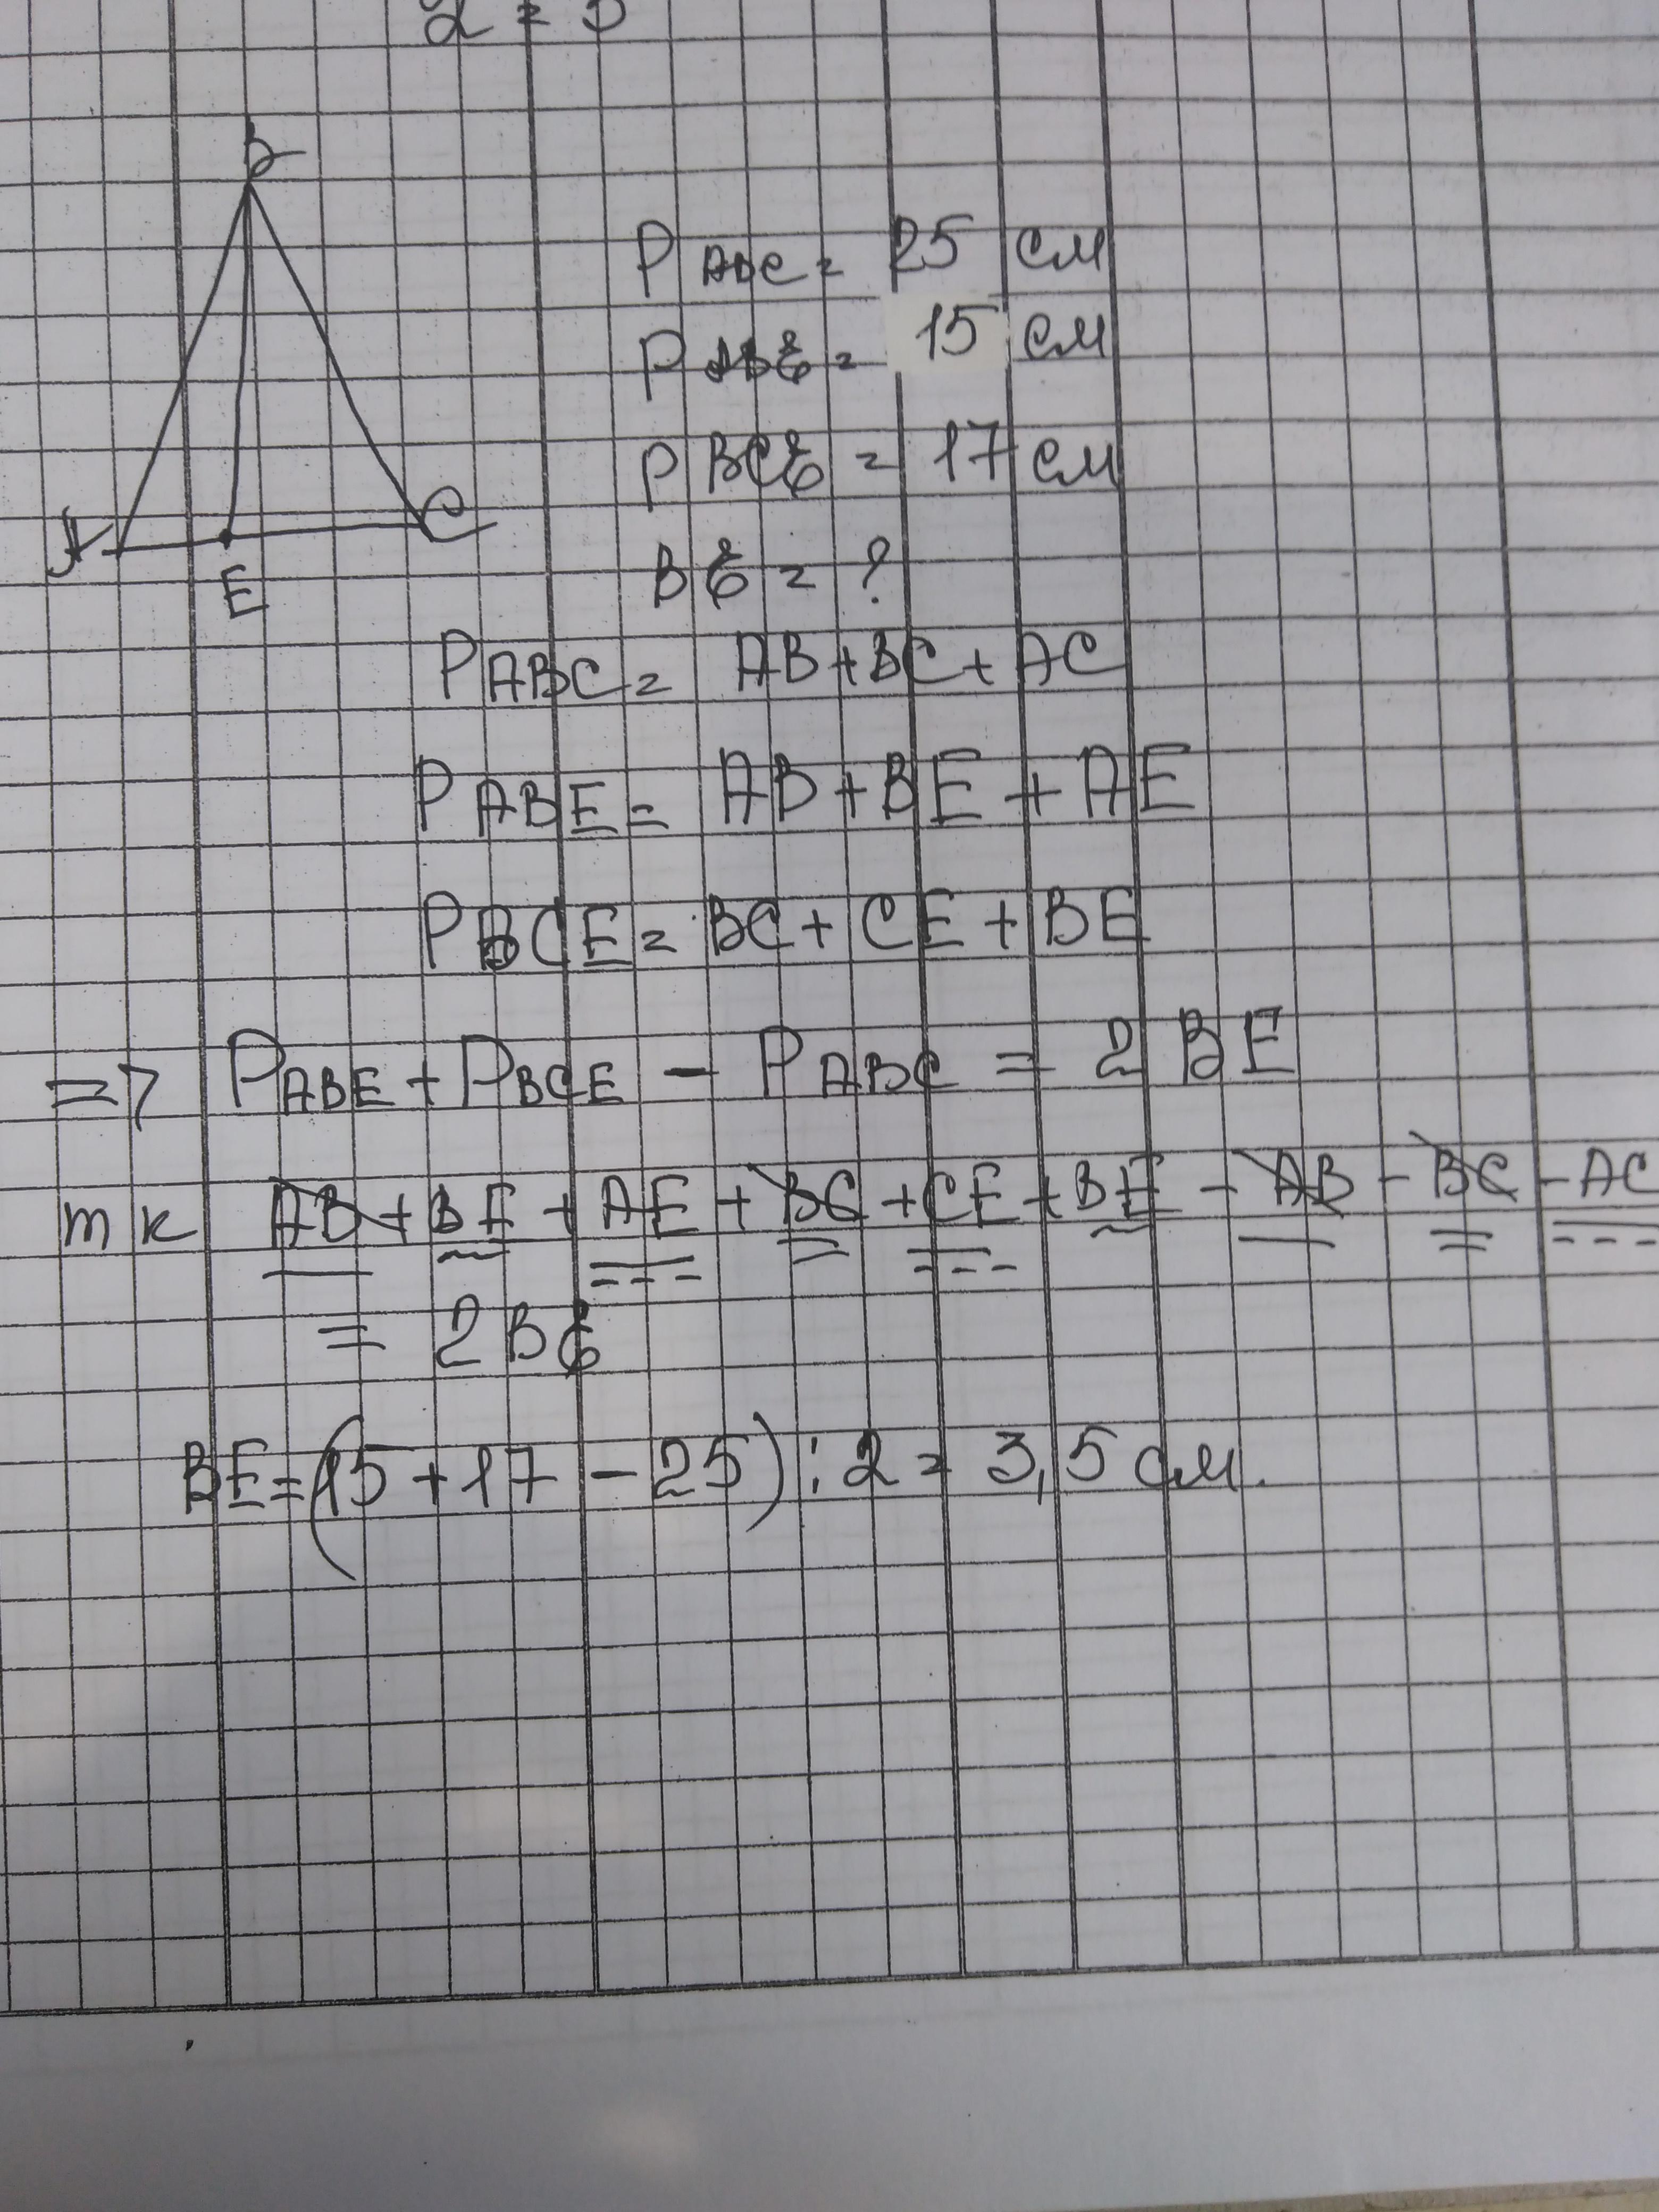 B
A
E
C
P ABC = 25 см
P ABE = 15 см
P BCE = 17 см
BE = ?
P ABC = AB + BC + AC
P ABE = AB + BE + AE
P BCE = BC + CE + BE
=> P ABE + P BCE - P ABC = 2 BE
т к AB + BE + AE + BC + CE + BE - AB - BC - AC
= 2 BE
BE = (15 + 17 - 25) : 2 = 3,5 см.